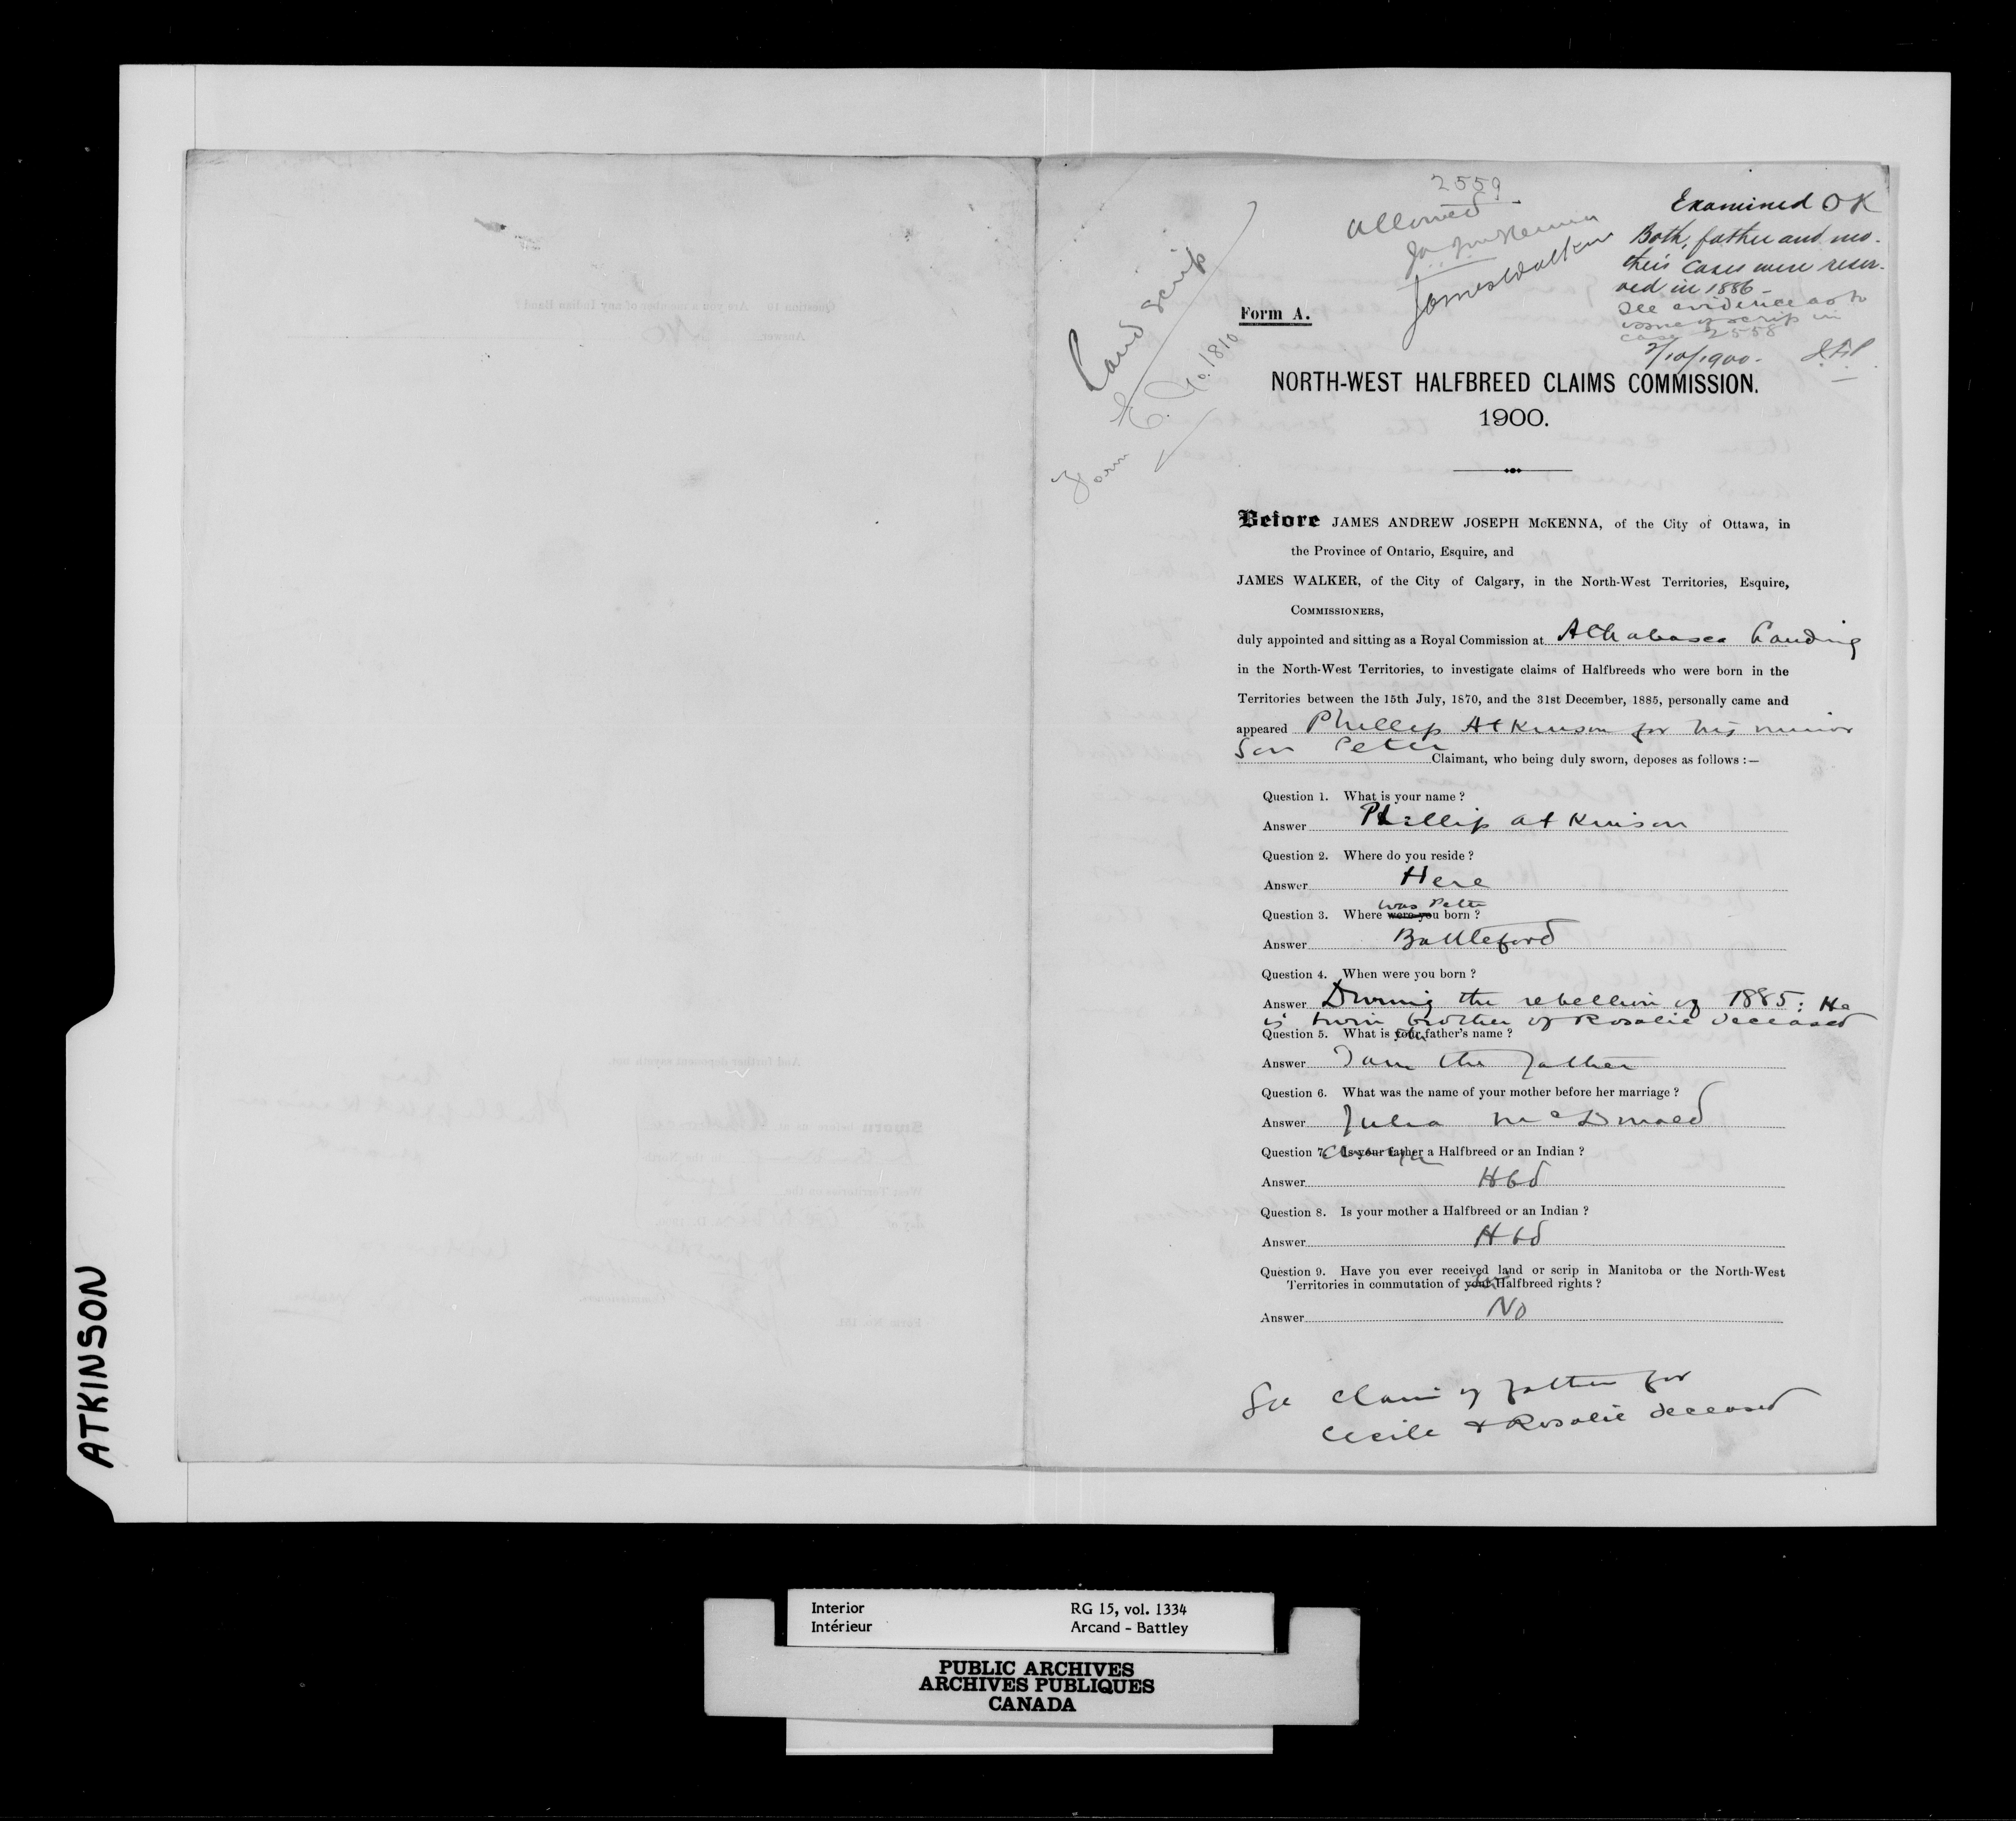 2559
Allowed
JamesWalker
Examined OK
Both, father and mo-
ther's cases were reser-
ved in 1886-
See evidence as to
issue of scrip in
case 2558
2/10/1900. J.F.P.
Land scrip
Form E. No. 1810
Form A.
NORTH-WEST HALFBREED CLAIMS COMMISSION.
1900.
Before JAMES ANDREW JOSEPH McKENNA, of the City of Ottawa, in
the Province of Ontario, Esquire, and
JAMES WALKER, of the City of Calgary, in the North-West Territories, Esquire,
COMMISSIONERS,
duly appointed and sitting as a Royal Commission at Athabasca Landing
in the North-West Territories, to investigate claims of Halfbreeds who were born in the
Territories between the 15th July, 1870, and the 31st December, 1885, personally came and
appeared Phillip Atkinson for his minor
Son Peter Claimant, who being duly sworn, deposes as follows :—
Question 1. What is your name ?
Answer Phillip atkinson
Question 2. Where do you reside ?
Answer Here
was Peter
Question 3. Where were you born ?
Answer Battleford
Question 4. When were you born ?
Answer During the rebellion of 1885: He
is twin brother of Rosalie deceased
Question 5. What is your father's name ?
Answer I am the father
Question 6. What was the name of your mother before her marriage ?
Answer Julia McDonald
Question 7. Is your father a Halfbreed or an Indian ?
Answer Hbd
Question 8. Is your mother a Halfbreed or an Indian ?
Answer Hbd
Question 9. Have you ever received land or scrip in Manitoba or the North-West
Territories in commutation of your Halfbreed rights ?
Answer No
See claim of father for
Cecile & Rosalie deceased
ATKINSON
Interior RG 15, vol. 1334
Intérieur Arcand - Battley
PUBLIC ARCHIVES
ARCHIVES PUBLIQUES
CANADA